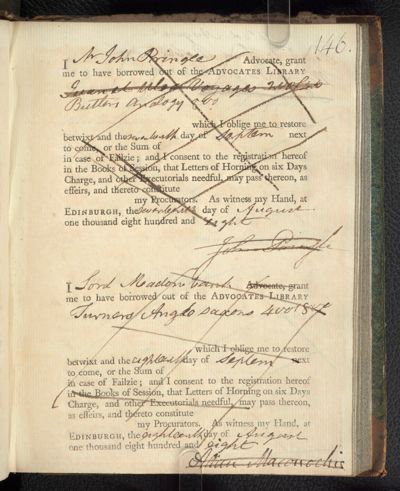 146.
I Mr John Pringle Advocate, grant
me to have borrowed out of the ADVOCATES LIBRARY
Voyages
Butlers Analogy 8vo
which I oblige me to restore
betwixt and the seventeenth day of Septem next
to come, or the Sum of
in case of Failzie; and I consent to the registration hereof
in the Books of Session, that Letters of Horning on six Days
Charge, and other Executorials needful, may pass thereon, as
effeirs, and thereto constitute
my Procurators. As witness my Hand, at
EDINBURGH, the seventeenth day of August
one thousand eight hundred and eight
John Pringle
I Lord Meadowbank Advocate, grant
me to have borrowed out of the ADVOCATES LIBRARY
Turners Anglo Saxons 4 vols 8vo
which I oblige me to restore
betwixt and the eighteenth day of Septem next
to come, or the Sum of
in case of Failzie; and I consent to the registration hereof
in the Books of Session, that Letters of Horning on six Days
Charge, and other Executorials needful, may pass thereon,
as effeirs, and thereto constitute
my Procurators. As witness my Hand, at
EDINBURGH, the eighteenth day of August
one thousand eight hundred and eight
Allan Maconochie